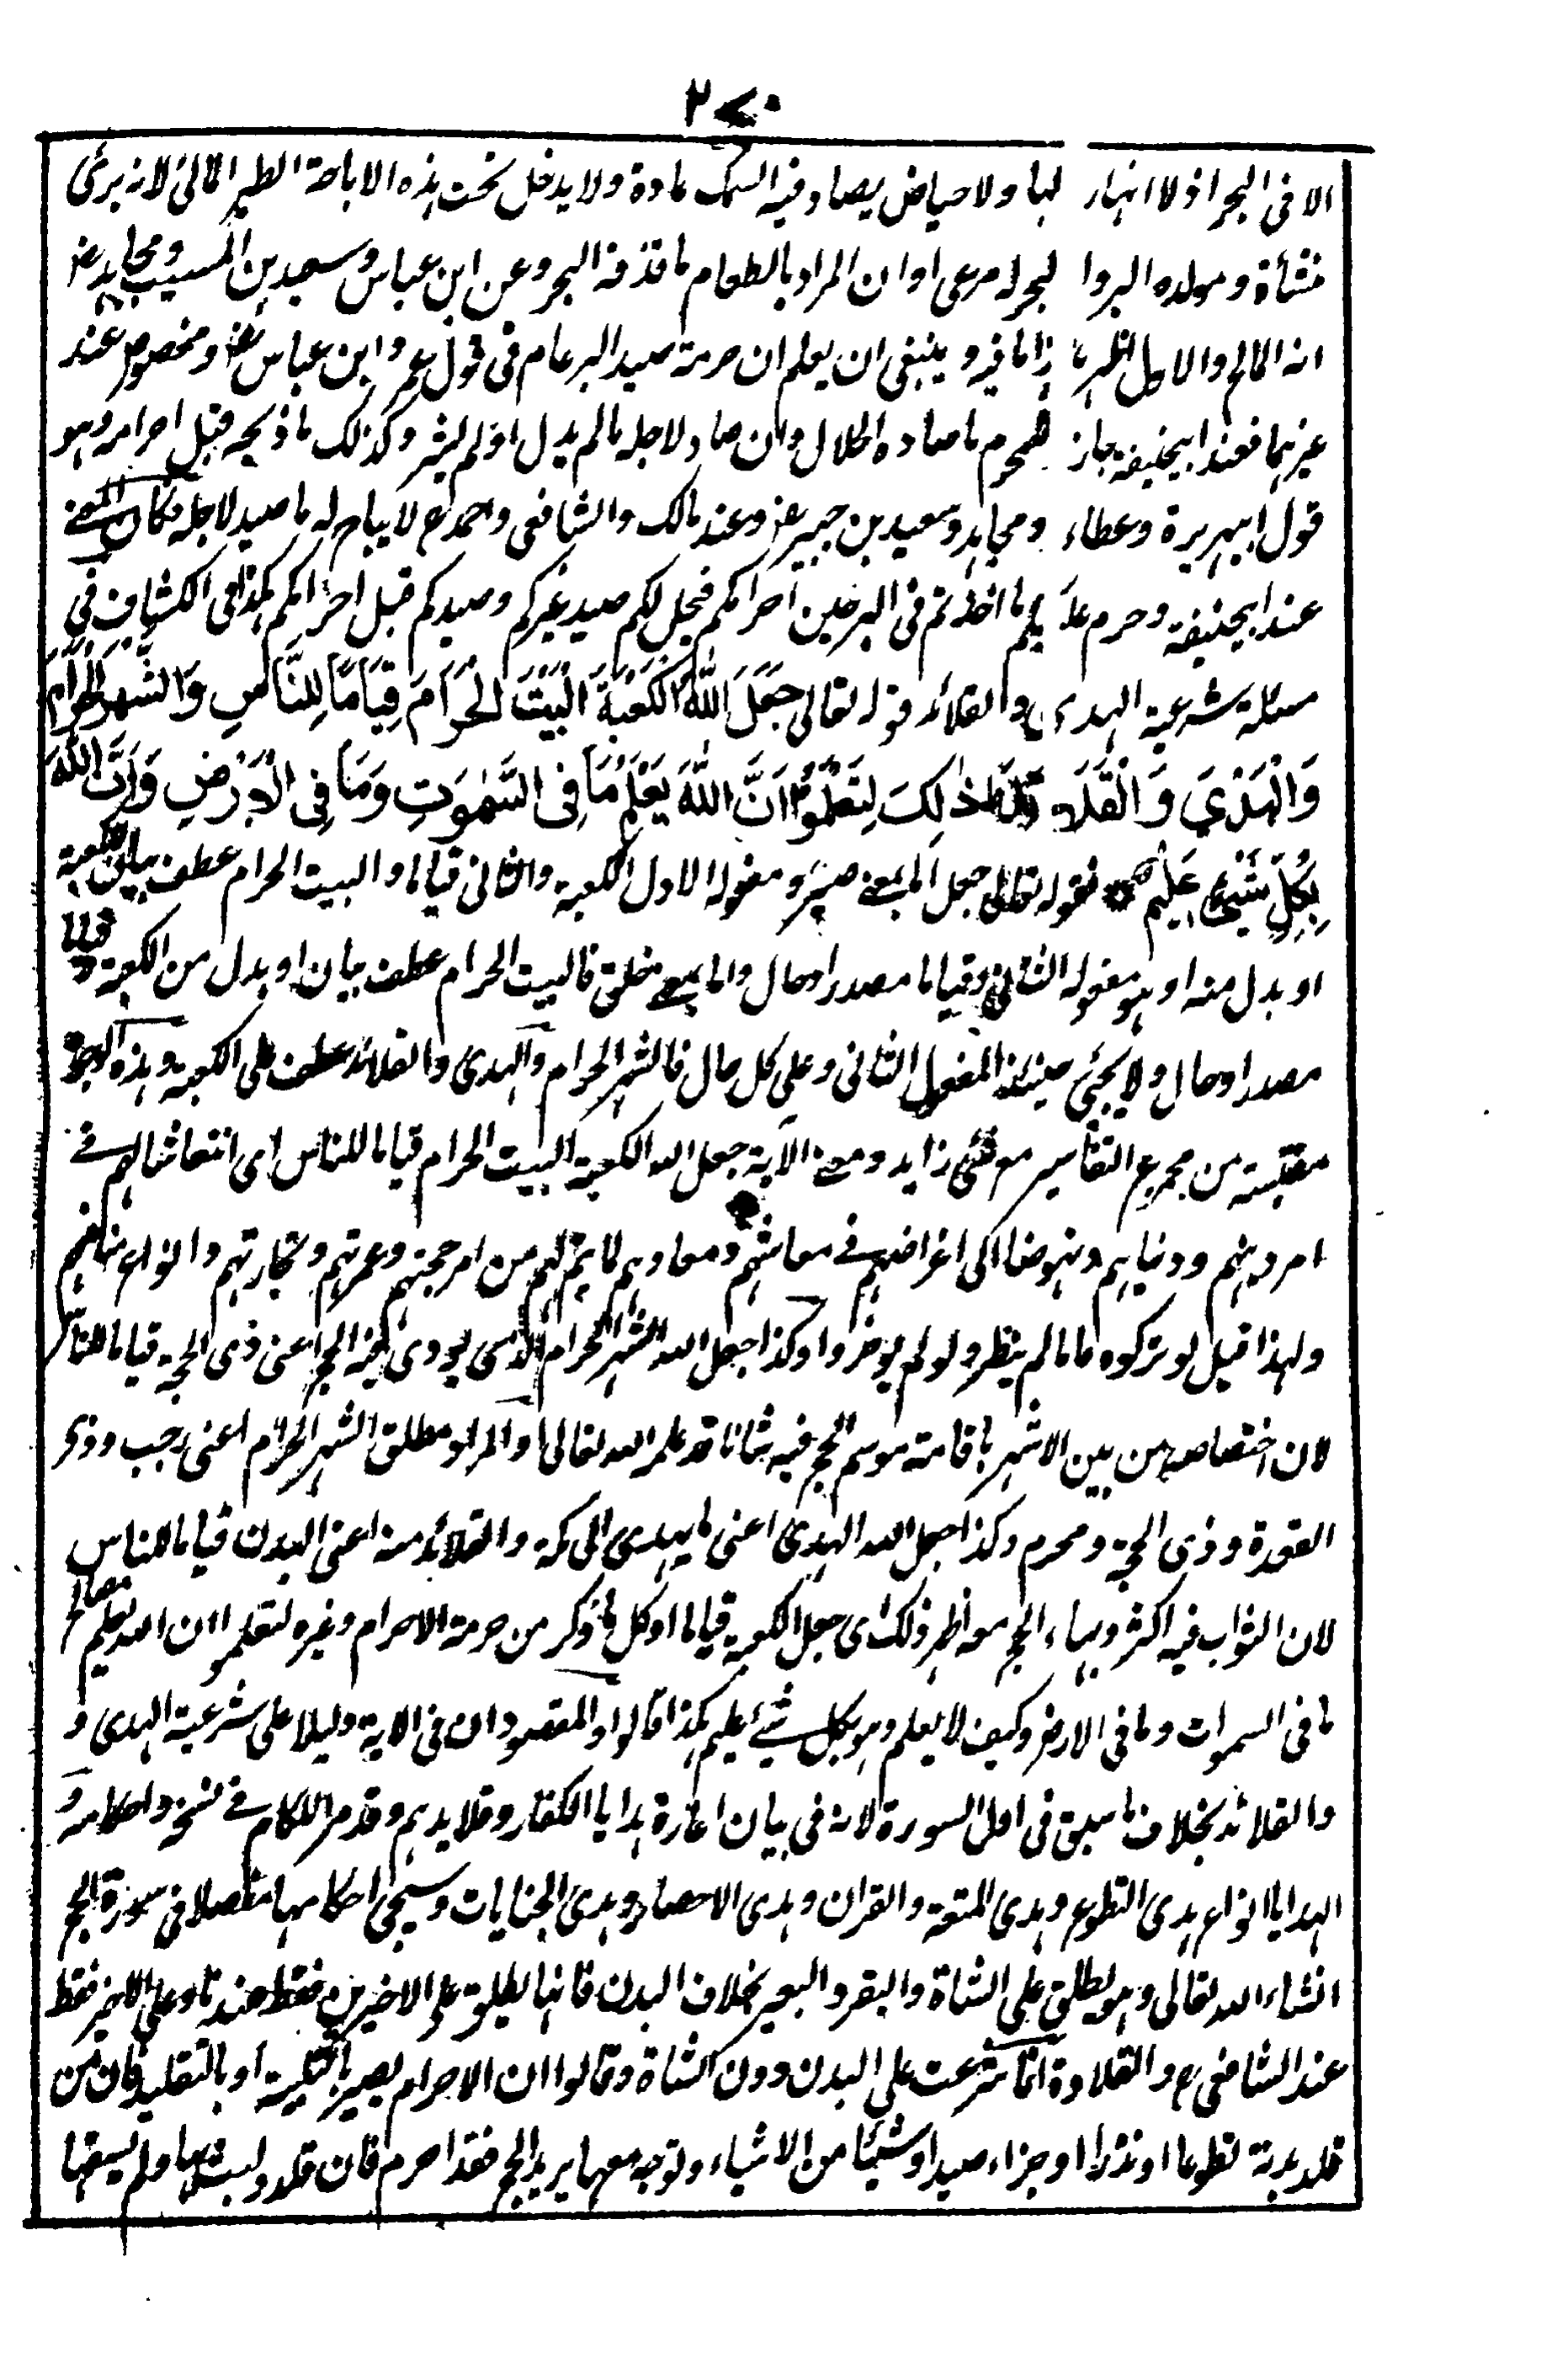 ٢٧٠
الا فى البحر اذ لا انهار لها ولا حياض يصاد فيه السمك عادة ولا يدخل تحت هذه الاباحة الطير المائى لانه برئى
منشأة ومولده البر والبحر له مرعى او ان المراد بالطعام ما قذفه البحر وعن ابن عباس وسعيد بن المسيب ومجاهد رض
انه المالح والاول اظهر هذا ما فيه وينبغى ان يعلم ان حرمة صيد البر عام فى قول عمر وابن عباس رض ومخصوص عند
غيرهما فعند ابيحنيفة جاز للمحرم ما صاده الحلال وان صاد لاجله ما لم يدل او لم يشر وكذلك ما ذبحه قبل احرامه وهو
قول ابيهريرة وعطاء ومجاهد وسعيد بن جبير رض وعند مالك والشافعى واحمد رح لا يباح له ما صيد لاجله فكان المعنے
عند ابيحنيفة وحرم عليكم ما اخذتم فى البر حين احرامكم فيحل لكم صيد غيركم وصيدكم قبل احرامكم هكذا فى الكشاف فى
مسئلة شرعية الهدى والقلائد قوله تعالى جَعَلَ اللهُ الْكَعْبَةَ الْبَيْتَ الْحَرَامَ قِيَامًا لِلنَّاسِ وَالشَّهْرَ الْحَرَامَ
وَالْهَدْيَ وَالْقَلَائِدَ ذٰلِكَ لِتَعْلَمُوْا اَنَّ اللهَ يَعْلَمُ مَا فِى السَّمٰوٰتِ وَمَا فِى الْاَرْضِ وَاَنَّ اللهَ
بِكُلِّ شَيْئٍ عَلِيْمٌ فقوله تعالى جعل اما بمعنے صير ومفعوله الاول الكعبة والثانى قياما والبيت الحرام عطف بيان للكعبة
او بدل منه او هو مفعوله الثانى وقياما مصدر او حال واما بمعنے خلق فالبيت الحرام عطف بيان او بدل من الكعبة وقياما
مصدر او حال ولا يجئ حينئذ المفعول الثانى وعلى كل حال فالشهر الحرام والهدى والقلائد عطف على الكعبة وهذه الوجوه
مقتبسة من مجموع التفاسير مع شئ زايد ومعنے الآية جعل الله الكعبة البيت الحرام قياما للناس اى انتعاشا لهم فے
امر دينهم ودنياهم ونهوضا الى اغراضهم فے معاشهم ومعادهم لما يتم لهم من امر حجهم وعمرتهم وتجارتهم وانواع منافعهم
ولهذا قيل لو تركوه عاما لم ينظروا ولم يوخروا وكذا جعل الله الشهر الحرام الذى يودى فيه الحج اعنى ذى الحجة قياما للناس
لان اختصاصه من بين الاشهر باقامة موسم الحج فيه شانا قد علمه الله تعالى او المراد مطلق الشهر الحرام اعنى رجب وذى
القعدة وذى الحجة ومحرم وكذا جعل الله الهدى اعنى ما يهدى الى مكة والقلائد منه اعنى البدن قياما للناس
لان الثواب فيه اكثر وبهاء الحج معه اظهر ذلك اى جعل الكعبة قياما او كل ما ذكر من حرمة الاحرام وغيره لتعلموا ان الله يعلم مصالح
ما فى السموات وما فى الارض وكيف لا يعلم وهو بكل شئے عليم هكذا قالوا والمقصود ان فى الاية دليلا على شرعية الهدى و
والقلائد بخلاف ما سبق فى اول السورة لانه فى بيان اغارة هدايا الكفار وقلايدهم وقد مر الكلام فے نسخه واحكامه و
الهدايا انواع هدى التطوع وهدى المتعة والقران وهدى الاحصار وهدى الجنايات وسيجئ احكامها مفصلا فى سورة الحج
انشاء الله تعالى وهو يطلق على الشاة والبقر والبعير بخلاف البدن فانها يطلق على الاخيرين فقط عندنا وعلى الاخير فقط
عند الشافعى رح والقلادة انما شرعت على البدن دون الشاة وقالوا ان الاحرام يصير بالتلبية او بالتقليد فان من
قلد بدنة تطوعا او نذرا او جزاء صيد او شيئا من الاشياء وتوجه معها يريد الحج فقد احرم فان قلد ولم يسقها